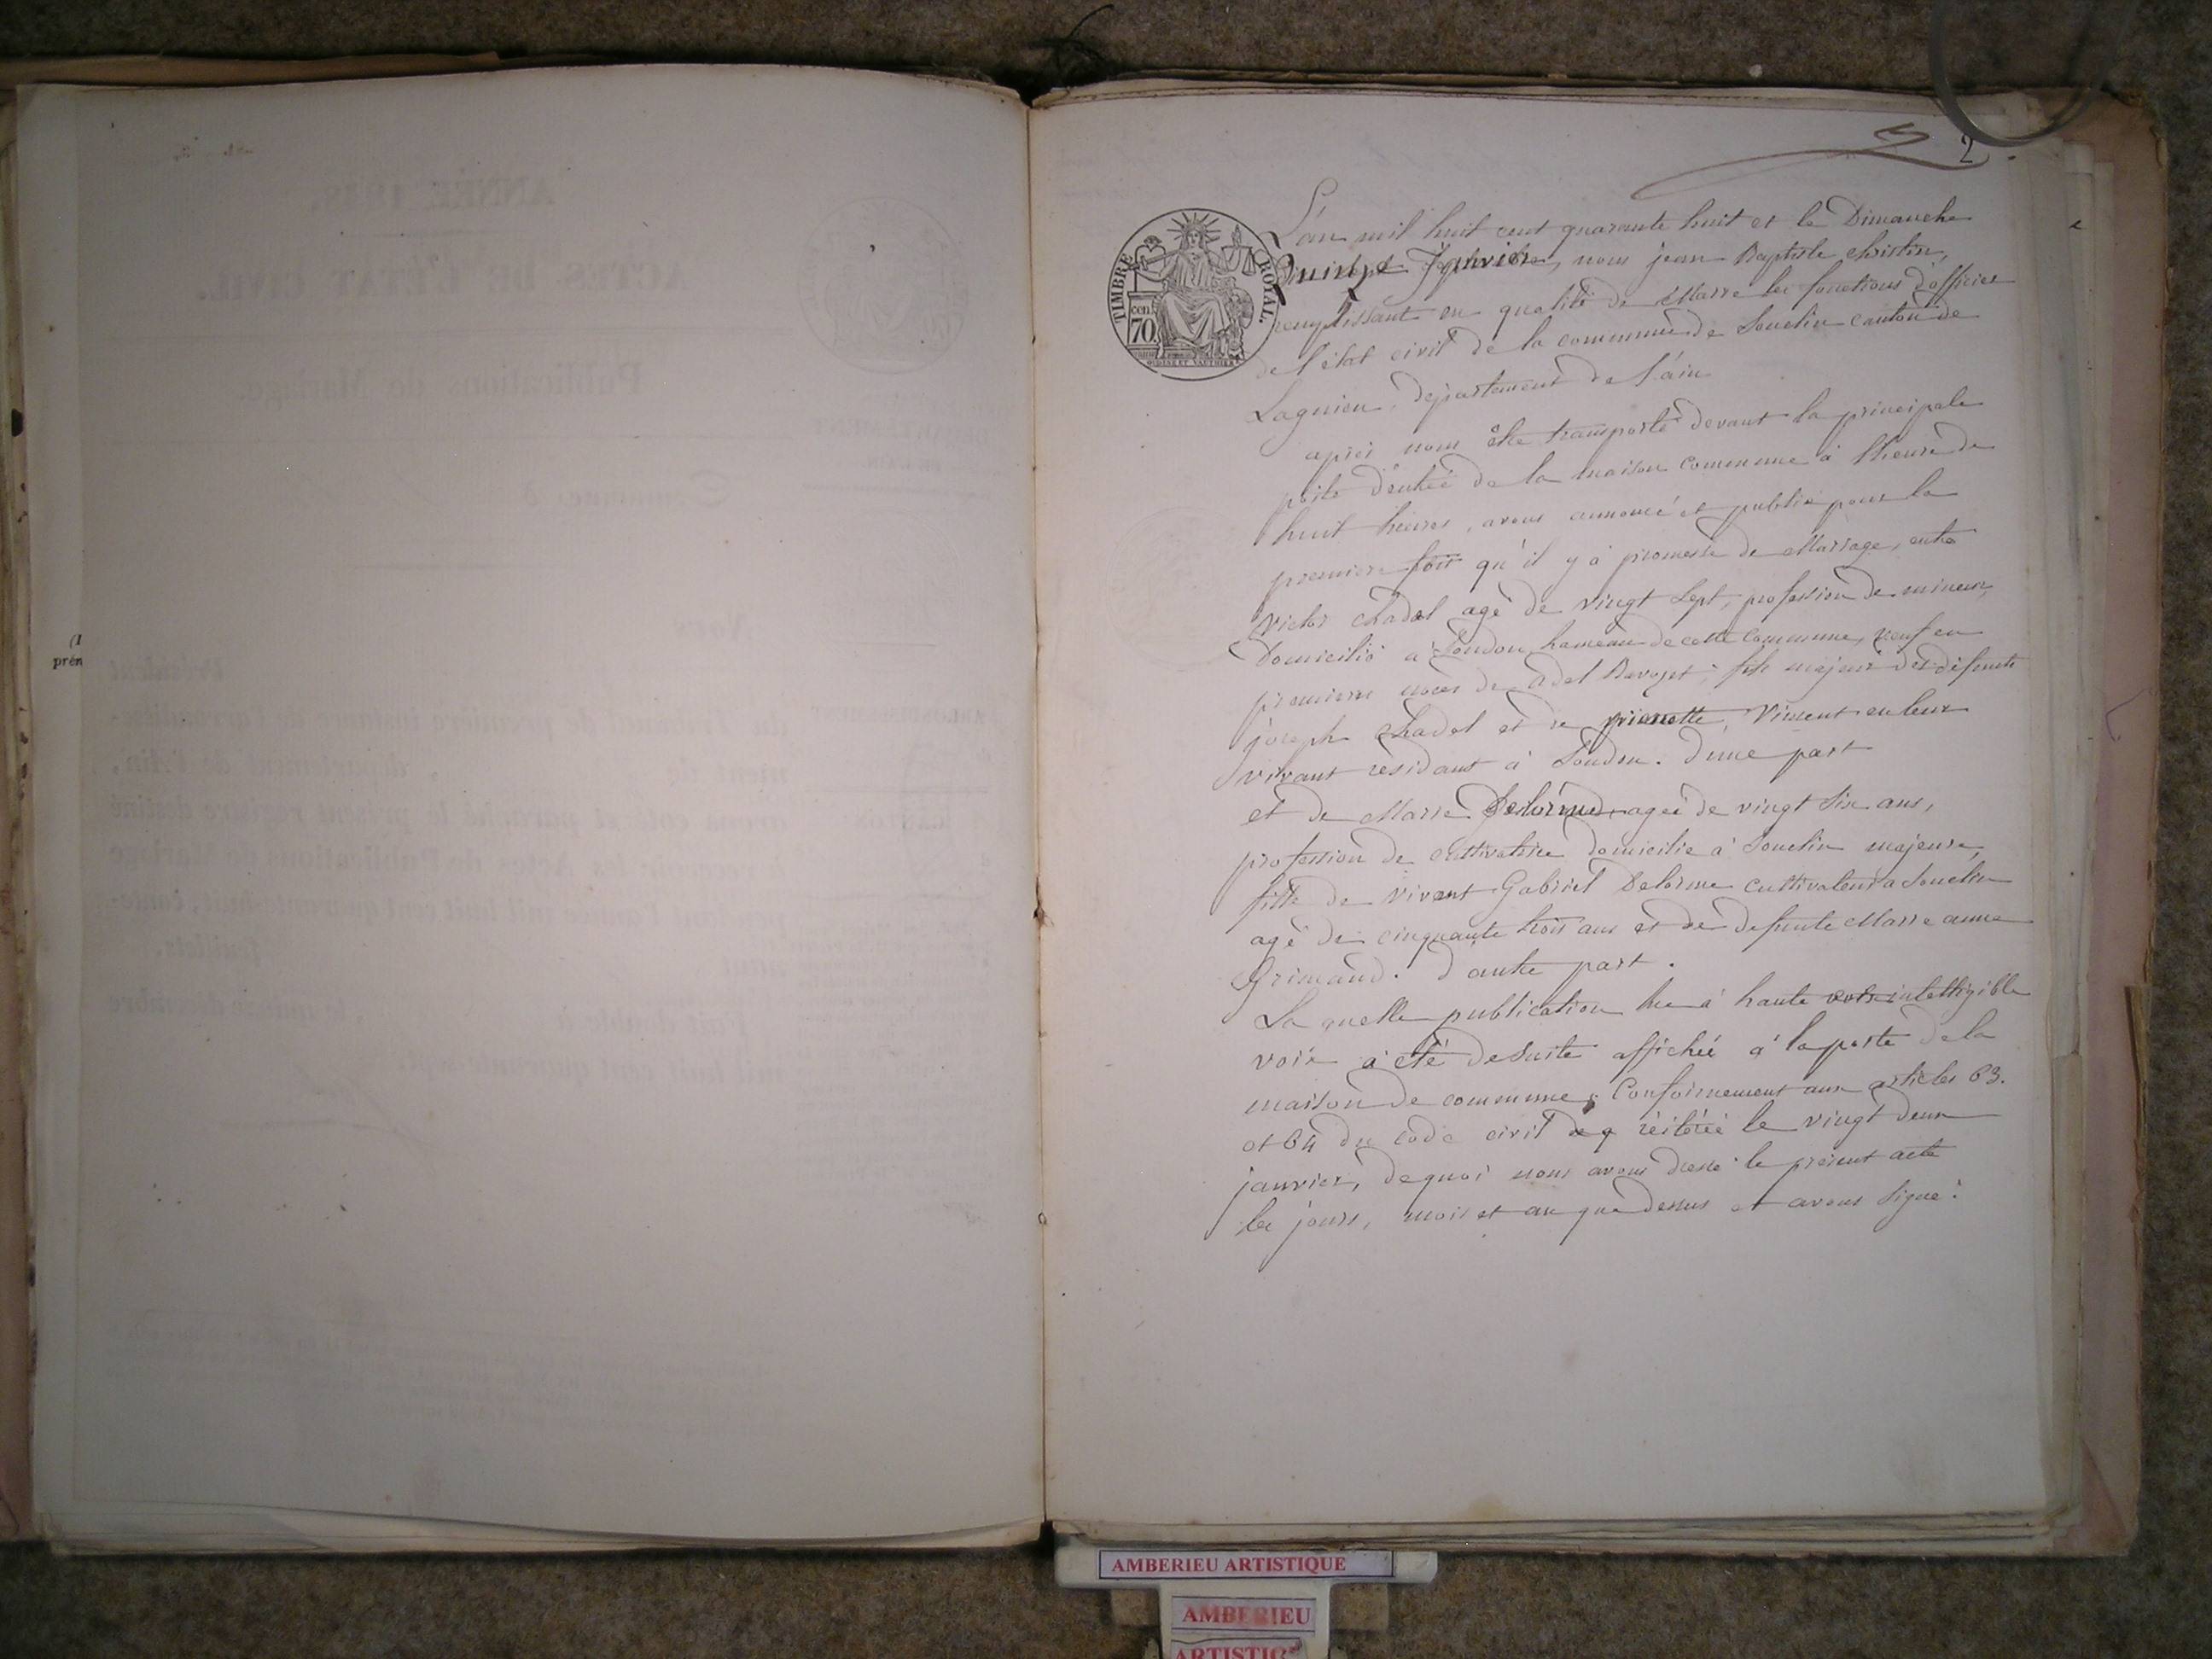 2
TIMBRE ROYAL.
cen. 70.
L'an mil huit cent quarante huit et le Dimanche
Quinze Janvier, nous jean Baptiste christin,
remplissant en qualité de Maire les fonctions d'officier
de l'état civil de la commune de Souclin canton de
Lagnieu, département de l'ain
après nous être transporté devant la principale
porte d'entrée de la maison commune à l'heure de
huit heures, avons annoncé et publié pour la
premiere fois qu'il y à promesse de Mariage, entre
Victor chadel agé de vingt sept, profession de mineur,
Domicilié a Soudon hameau de cette commune, veuf en
premiere noces de adel, fils majeur des défunts
joseph chadel et de pierrette Viment en leur
vivant résidant à Soudon. d'une part
et de Marie Delorme agée de vingt six ans,
profession de cultivatrice domicilie à Souclin majeure,
fille de vivent Gabriel Delorme cultivateur a Souclin
agé de cinquante trois ans et de defunte Marie anne
Grimand. d'autre part.
La quelle publication lue à haute intelligible
voix a été desuite affichée a la porte de la
maison de commune, Conformement aux articles 63.
et 64 du code civil réitérée le vingt deux
janvier, de quoi nous avons dressé le présent acte
les jours, mois et an que dessus et avons signé.
ANNÉE 1848.
ACTES DE L'ÉTAT CIVIL.
Publication de Mariage.
(1
prén
AMBERIEU ARTISTIQUE
AMBERIEU
ARTISTIQ